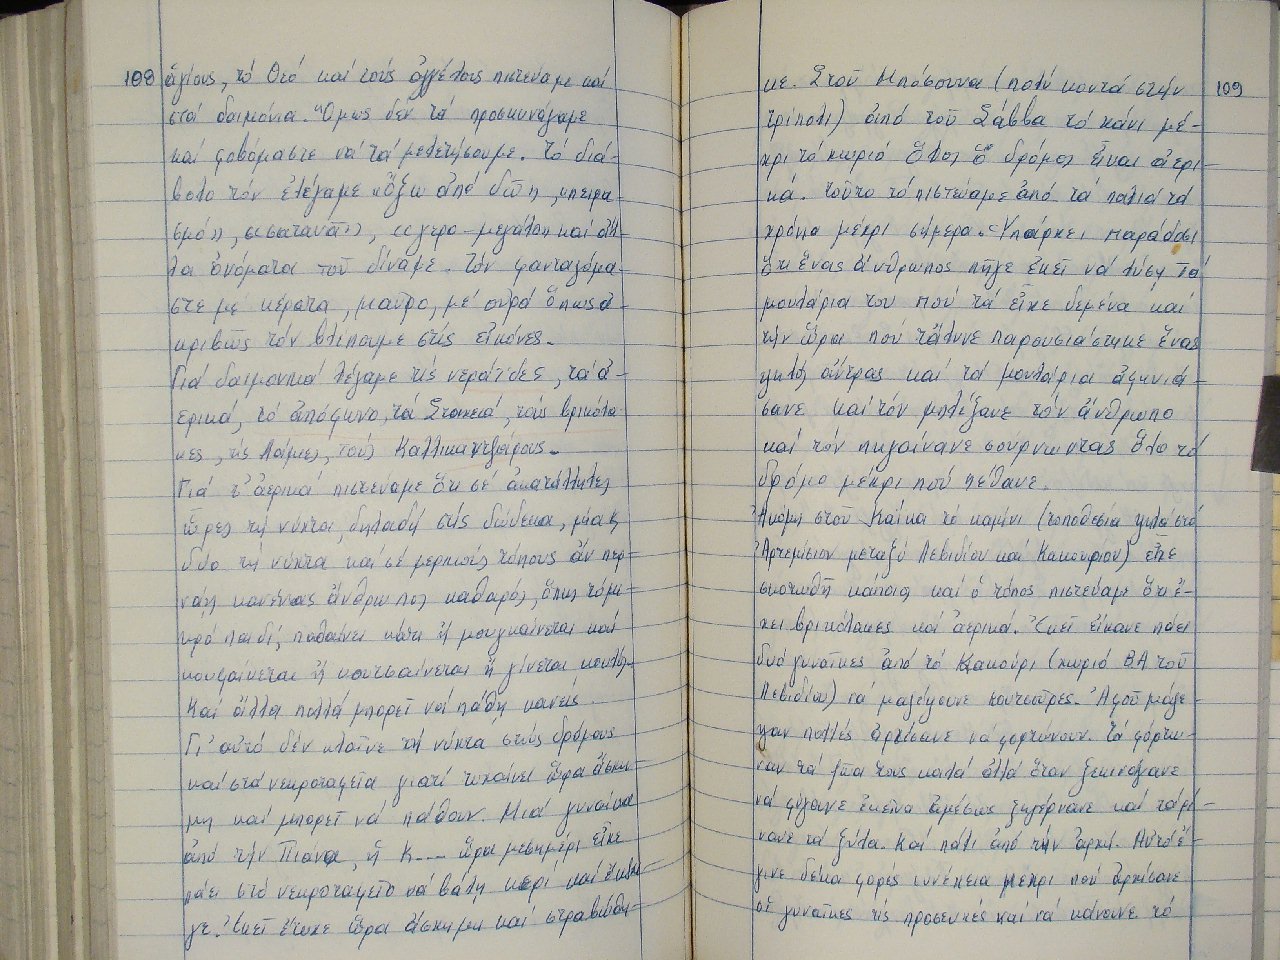 108
ἁγίους, τό Θεό καί τούς ἀγγέλους πιστεύαμε καί
στά δαιμόνια. Ὅμως δέν τά προσκυνάγαμε
καί φοβόμαστε νά τά μελετήσουμε. Τό διά-
βολο τόν ἐλέγαμε «ὄξω ἀπό δῶ», «πειρα-
σμό», «σατανᾶ», «γερο-μεγάλο» καί ἄλ-
λα ὀνόματα τοῦ δίναμε. Τόν φανταζόμα-
στε μέ κέρατα, μαῦρο, μέ οὐρά ὅπως ἀ-
κριβῶς τόν βλέπουμε στίς εἰκόνες.
Γιά δαιμονικά λέγαμε τίς νεράϊδες, τά ἀ-
ερικά, τό ἀπόφωνο, τά Στοιχειά, τούς βρικόλα-
κες, τίς Λάμιες, τούς Καλλικαντζάρους.
Γιά τ' ἀερικά πιστεύαμε ὅτι σέ ἀκατάλληλες
ὧρες τή νύκτα, δηλαδή στίς δώδεκα, μία ἤ
δύο τή νύκτα καί σέ μερικούς τόπους ἄν περ-
νάη κανένας ἄνθρωπος καθαρός, ὅπως τό μι-
κρό παιδί, παθαίνει κάτι ἤ μουγκαίνεται καί
κουφαίνεται ἤ κουτσαίνεται ἤ γίνεται κουλός.
Καί ἄλλα πολλά μπορεῖ νά πάθη κανείς.
Γι' αὐτό δέν κλαῖνε τή νύκτα στούς δρόμους
καί στά νεκροταφεῖα γιατί τυχαίνει ὥρα ἄσκη-
μη καί μπορεῖ νά πάθουν. Μιά γυναίκα
ἀπό τήν Πιάνα, ἡ Κ.... ὥρα μεσημέρι εἶχε
πάει στό νεκροταφεῖο νά βάλη κερί καί ἔκλαι-
γε. Ἐκεῖ ἔτυχε ὥρα ἄσκημη καί στραβώθη-
109
κε. Στοῦ Μπόσουνα (πολύ κοντά στήν
τρίπολι) ἀπό τοῦ Σάββα τό χάνι μέ-
χρι τό χωριό ὅλος ὁ δρόμος εἶναι ἀερι-
κά. Τοῦτο τό πιστεύαμε ἀπό τά παλιά τά
χρόνια μέχρι σήμερα. Ὑπάρχει παράδοσι
ὅτι ἕνας ἄνθρωπος πῆγε ἐκεῖ νά λύση τά
μουλάρια του πού τά εἶχε δεμένα καί
τήν ὥρα πού τἄλυνε παρουσιάστηκε ἕνας
ψηλός ἄντρας καί τά μουλάρια ἀφηνιά-
σανε καί τόν μπλέξανε τόν ἄνθρωπο
καί τόν πηγαίνανε σούρνωντας ὅλο τό
δρόμο μέχρι πού πέθανε.
Ἀκόμη στοῦ Καίκα τό καμίνι (τοποθεσία ψηλά στό
Ἀρτεμίσιον μεταξύ Λεβιδίου καί Κακουρίου) εἶχε
σκοτωθῆ κάποιος καί ὁ τόπος πιστεύαμε ὅτι ἔ-
χει βρικόλακες καί ἀερικά. Ἐκεῖ εἴχανε πάει
δυό γυναῖκες ἀπό τό Κακούρι (χωριό ΒΑ τοῦ
Λεβιδίου) νά μαζέψουνε κουτσοῦρες. Ἀφοῦ μάζε-
ψαν πολλές ἀρχίσανε νά φορτώνουν. Τά φόρτω-
ναν τά ζῶα τους καλά ἀλλά ὅταν ξεκινάγανε
νά φύγουνε ἐκεῖνα ἀμέσως ξεγέρνανε καί τά ρί-
χνανε τά ξύλα. Καί πάλι ἀπό τήν ἀρχή. Αὐτό ἔ-
γινε δέκα φορές συνέχεια μέχρι πού ἀρχίσανε
οἱ γυναῖκες τίς προσευχές καί νά κάνουνε τό